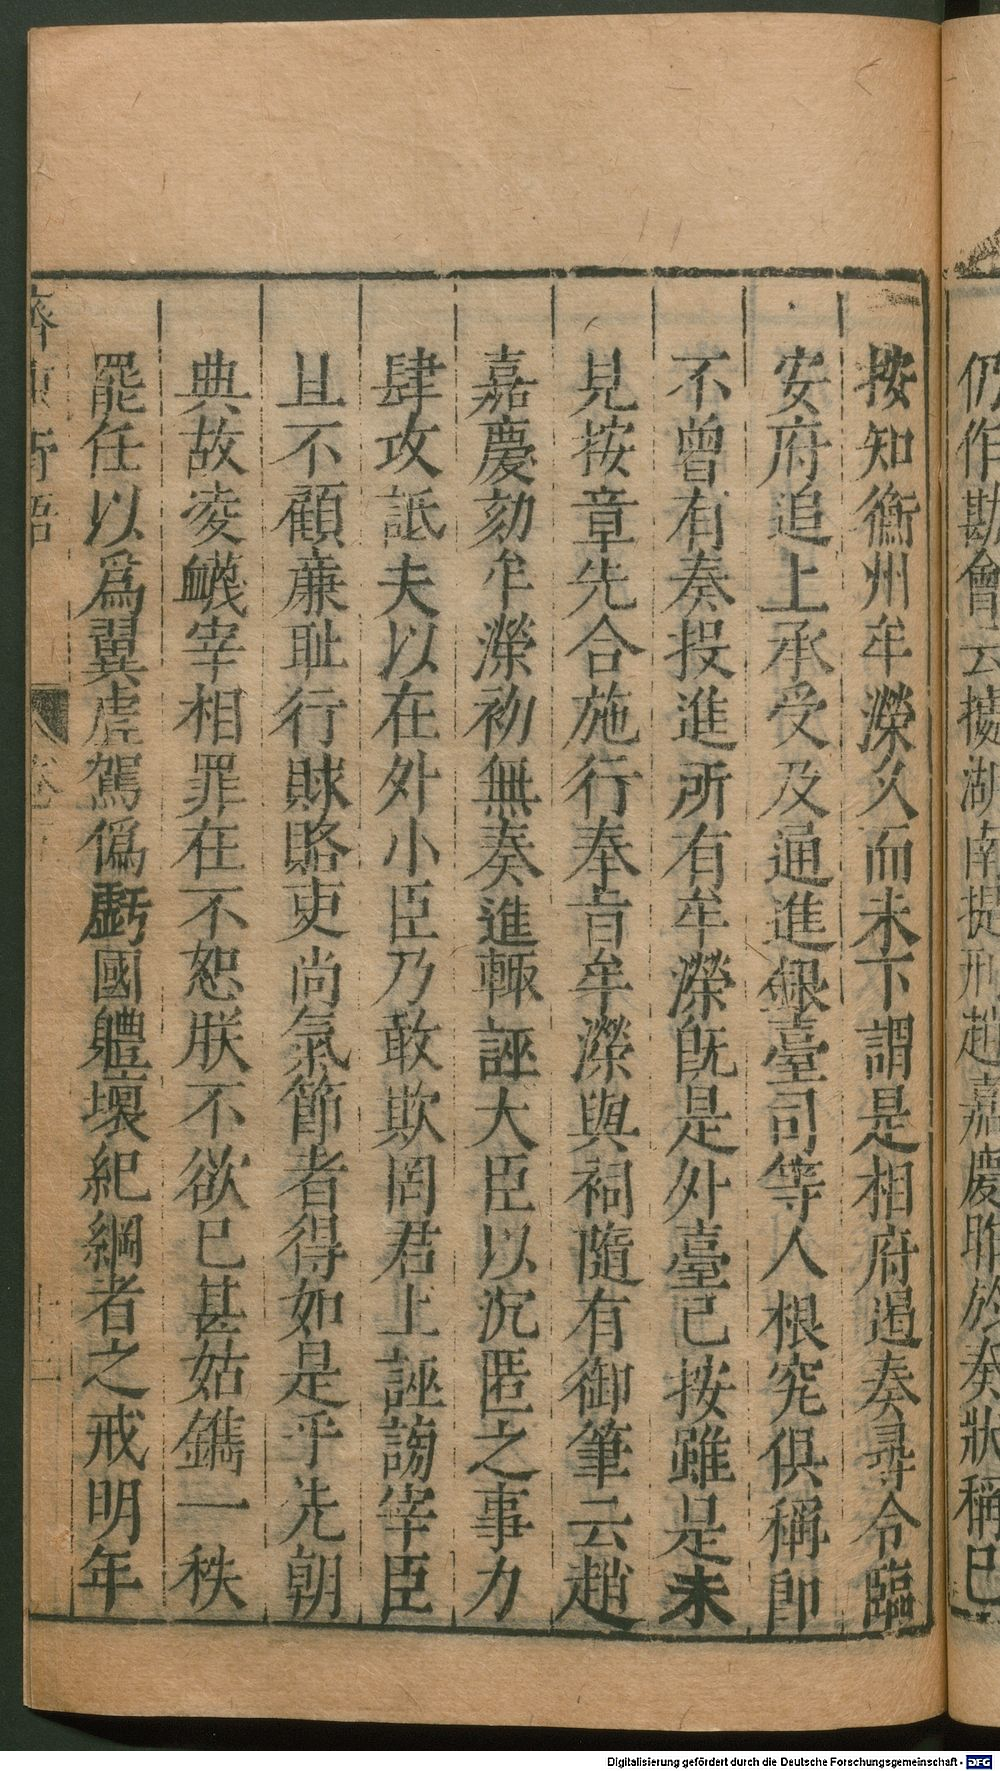 仍作勘會云據湖南提刑趙嘉慶昨於奏狀稱已
按知衡州牟濚久而未下謂是相府遏奏尋令臨
安府追上承受及通進銀臺司等人根究俱稱即
不曾有奏投進所有牟濚旣是外臺已按雖是未
見按章先合施行奉旨牟濚與祠隨有御筆云趙
嘉慶劾牟濚初無奏進輙誣大臣以沉匿之事力
肆攻詆夫以在外小臣乃敢欺罔君上誣謗宰臣
且不顧亷耻行賕賂吏尚氣節者得如是乎先朝
典故凌衊宰相罪在不恕朕不欲已甚姑鐫一秩
罷任以爲翼虐駕僞虧國體壞紀綱者之戒明年
齊東野語
Digitalisierung gefördert durch die Deutsche Forschungsgemeinschaft - DFG